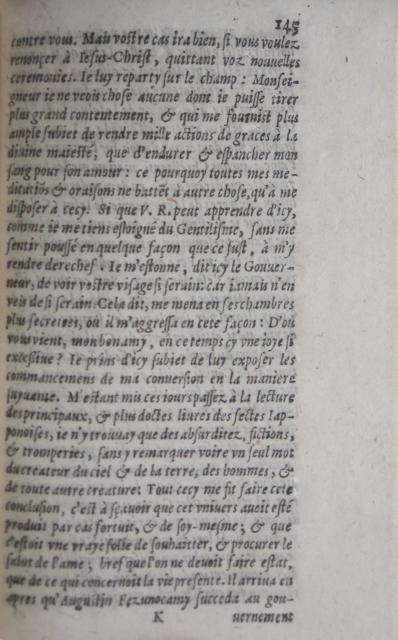 145
contre vous. Mais vostre cas ira bien, si vous voulez
renonçer à Iesus-Christ, quittant voz nouvelles
ceremonies. Ie luy reparty sur le champ: Monsei-
gneur ie ne veois chose aucune dont ie puisse tirer
plus grand contentement, & qui me fournist plus
ample subiet de rendre mille actions de graces à la
divine maiesté, que d'endurer & espancher mon
sang pour son amour: ce pourquoy toutes mes me-
ditatiõs & oraisons ne battẽt à autre chose, qu'à me
disposer à cecy. Si que V. R. peut apprendre d'icy,
comme ie me tiens esloigné du Gentilisme, sans me
sentir poussé en quelque façon que ce fust, à m'y
rendre derechef. Ie m'estonne, dit icy le Gouver-
neur, de voir vostre visage si serain: car iamais n'en
veis de si serain. Cela dit, me mena en ses chambres
plus secretes, où il m'aggressa en cete façon: D'où
vous vient, mon bon amy, en ce temps cy vne ioye si
excessive? Ie prins d'icy subiet de luy exposer les
commancemens de ma conversion en la maniere
suyvante. M'estant mis ces iours passez à la lecture
des principaux, & plus doctes livres des sectes Iap-
ponoises, ie n'y trouvay que des absurditez, fictions,
& tromperies, sans y remarquer voire vn seul mot
du createur du ciel & de la terre, des hommes, &
de toute autre creature. Tout cecy me fit faire cete
conclusion, c'est à sçavoir que cet vnivers avoit esté
produit par cas fortuit, & de soy-mesme; & que
c'estoit vne vraye folie de souhaitter, & procurer le
salut de l'ame; bref que l'on ne devoit faire estat,
que de ce qui concernoit la vie presente. Il arriva en
apres qu'Augustin Fezunocamy succeda au gou-
K vernement